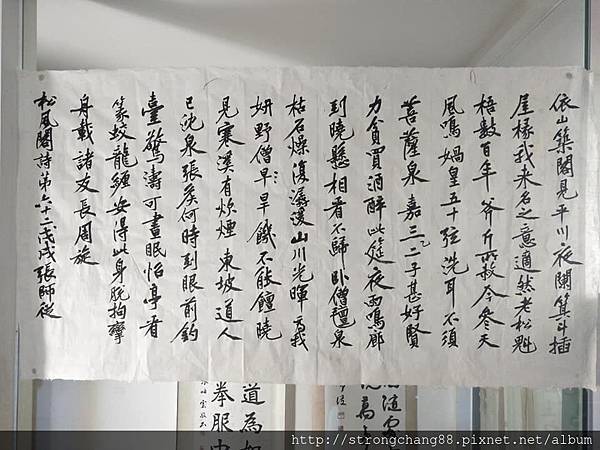 依山築閣見平川夜闌箕斗插
屋椽我來名之意適然老松魁
梧數百年斧斤赦今參天
風鳴媧皇五十弦洗耳不須
菩薩泉嘉三二子甚好賢
力貧買酒醉此筵夜雨鳴廊
到曉懸相看不歸臥僧氈泉
枯石燥復潺湲山川光暉為我
妍野僧早旱饑不能饘曉
見寒溪有炊煙東坡道人
已沈泉張侯何時到眼前釣
臺驚濤可晝眠怡亭看
篆蛟龍纏安得此身脫拘攣
舟載諸友長周旋
松風閣詩第六十二戊戌張師從
道為如
拳服中
http://strongchang88.pixnet.net/album